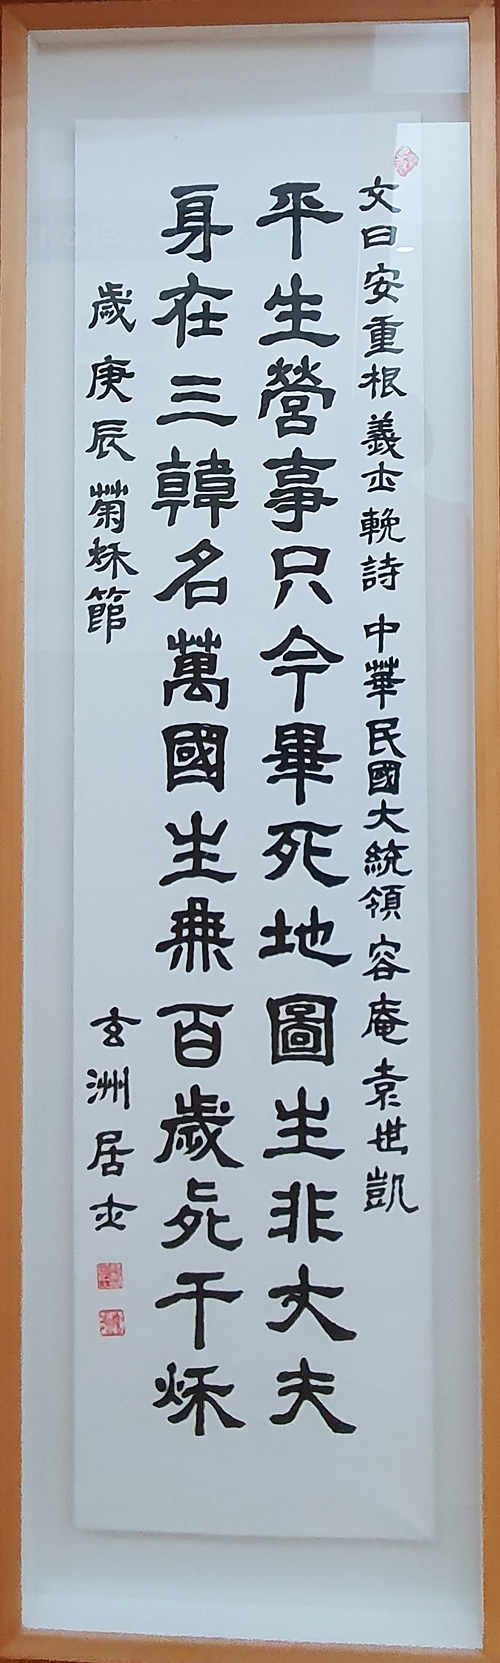 文曰安重根義士輓詩 中華民國大統領容庵袁世凱
平生營事只今畢死地圖生非丈夫
身在三韓名萬國生無百歲死千秌
歲庚辰菊秌節 玄洲居士